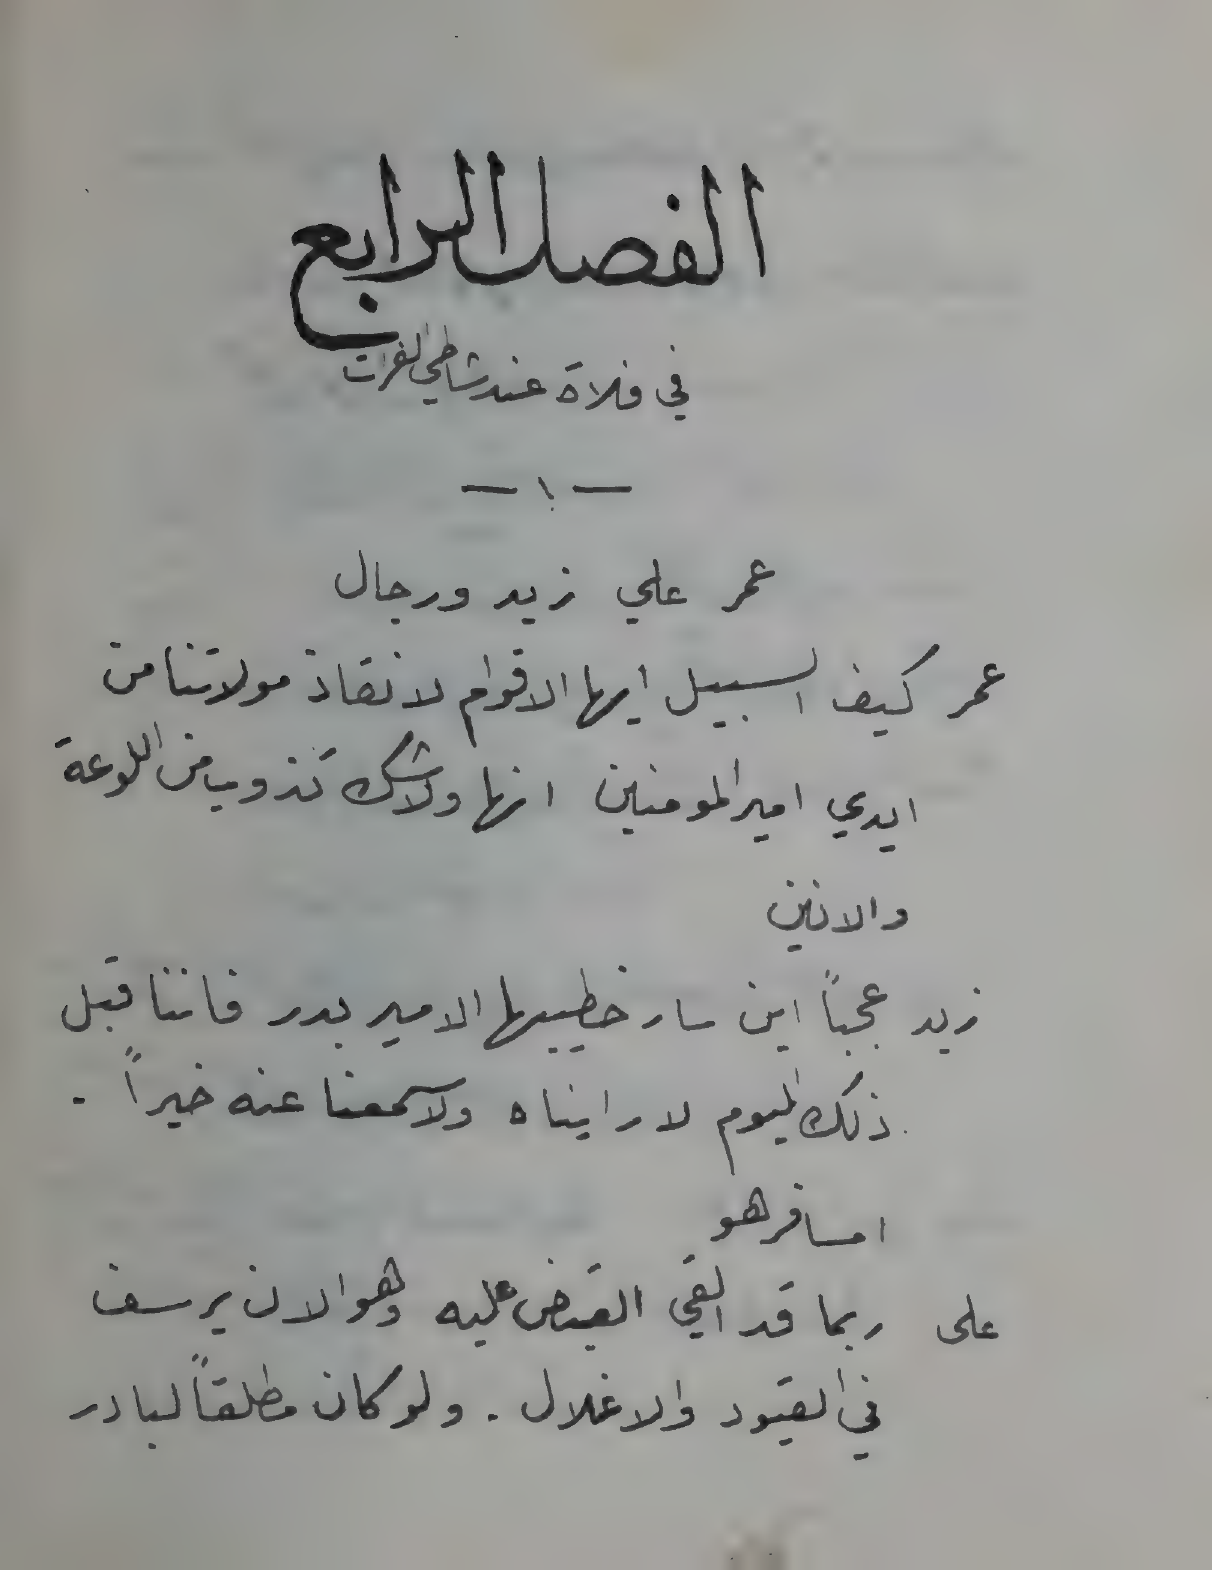 الفصل الرابع
في فلاة عند شاطئ الفرات
— ١ —
عمر علي زيد ورجال
عمر كيف السبيل ايها الاقوام لانقاذ مولاتنا من
ايدي امير المومنين انها ولاشك تذوب من اللوعة
والانين
زيد عجباً اين سار خطيبها الامير بدر فاننا قبل
ذلك اليوم لا رايناه ولا سمعنا عنه خيراً .
امسافر هو
على ربما قد القي القبض عليه وهو الان يرسف
في القيود والاغلال . ولو كان مطلقاً لبادر